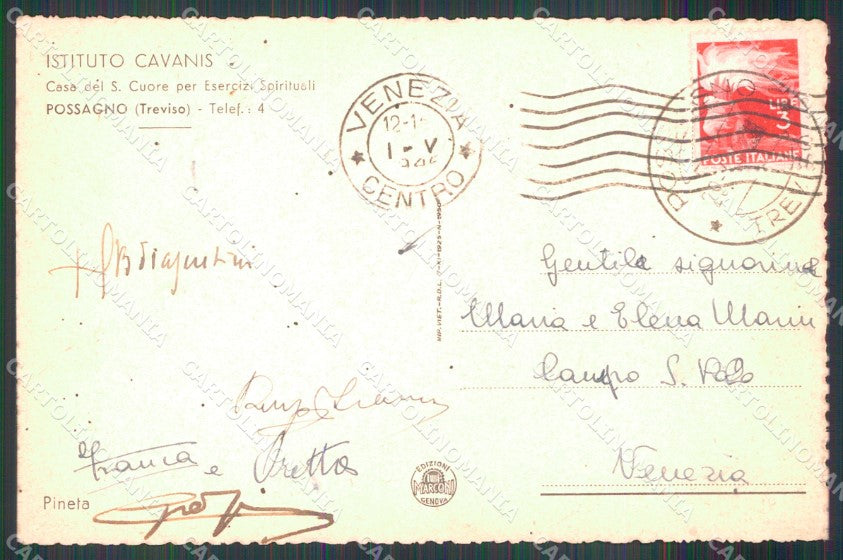 ISTITUTO CAVANIS
Casa del S. Cuore per Esercizi Spirituali
POSSAGNO (Treviso) - Telef.: 4
VENEZIA
12-1
1-V
CENTRO
POSSAGNO
TREVISO
LIRE
3
POSTE ITALIANE
RIP. VIET.-R.D.L. 7-XI-1925-N-1950
Gentile signorine
Maria e Elena Marin
Campo S. Polo
Venezia
Franca e
Pineta
EDIZIONI
MARCONI
GENOVA
CARTOLINOMANIA